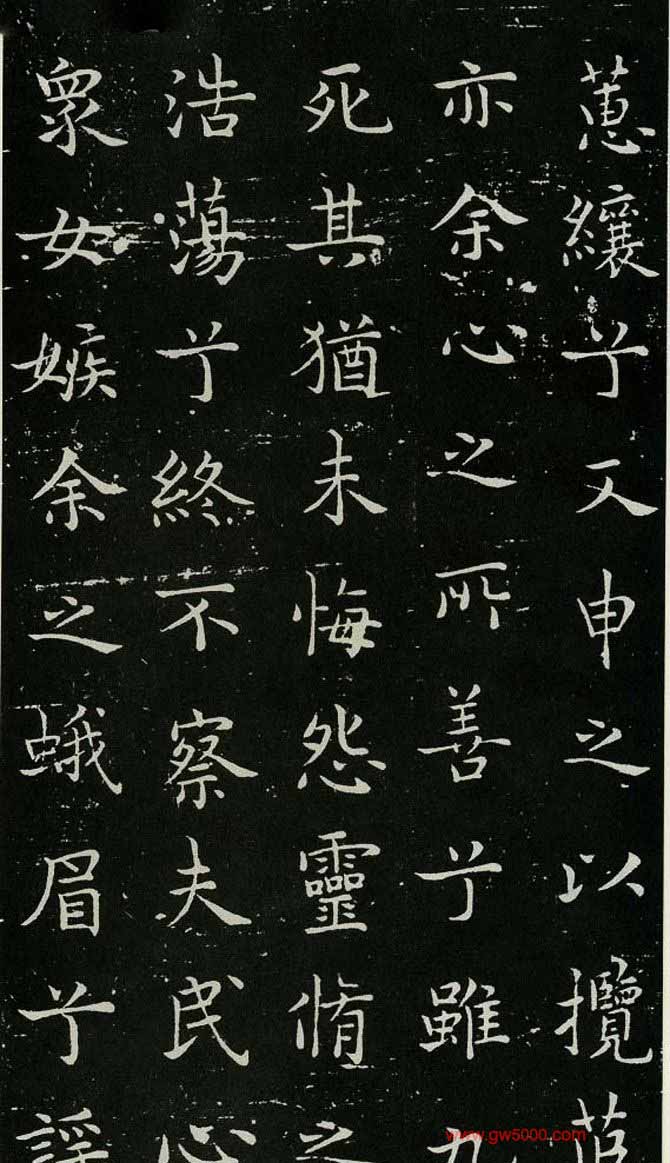 蕙纕兮又申之以攬茝
亦余心之所善兮雖九
死其猶未悔怨靈脩之
浩蕩兮終不察夫民心
衆女嫉余之蛾眉兮謡
www.gw5000.com